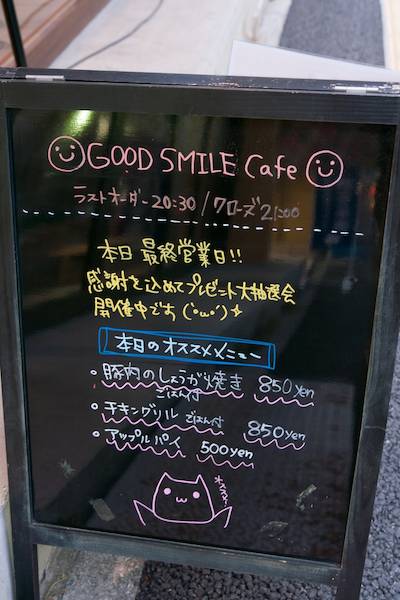 GOOD SMILE Cafe
ラストオーダー20:30/クローズ21:00
本日 最終営業日!!
感謝を込めてプレゼント大抽選会
開催中です(`･ω･´)✧
本日のオススメメニュー
・豚肉のしょうが焼き 850yen
ごはん付
・チキングリル ごはん付 850yen
・アップルパイ 500yen